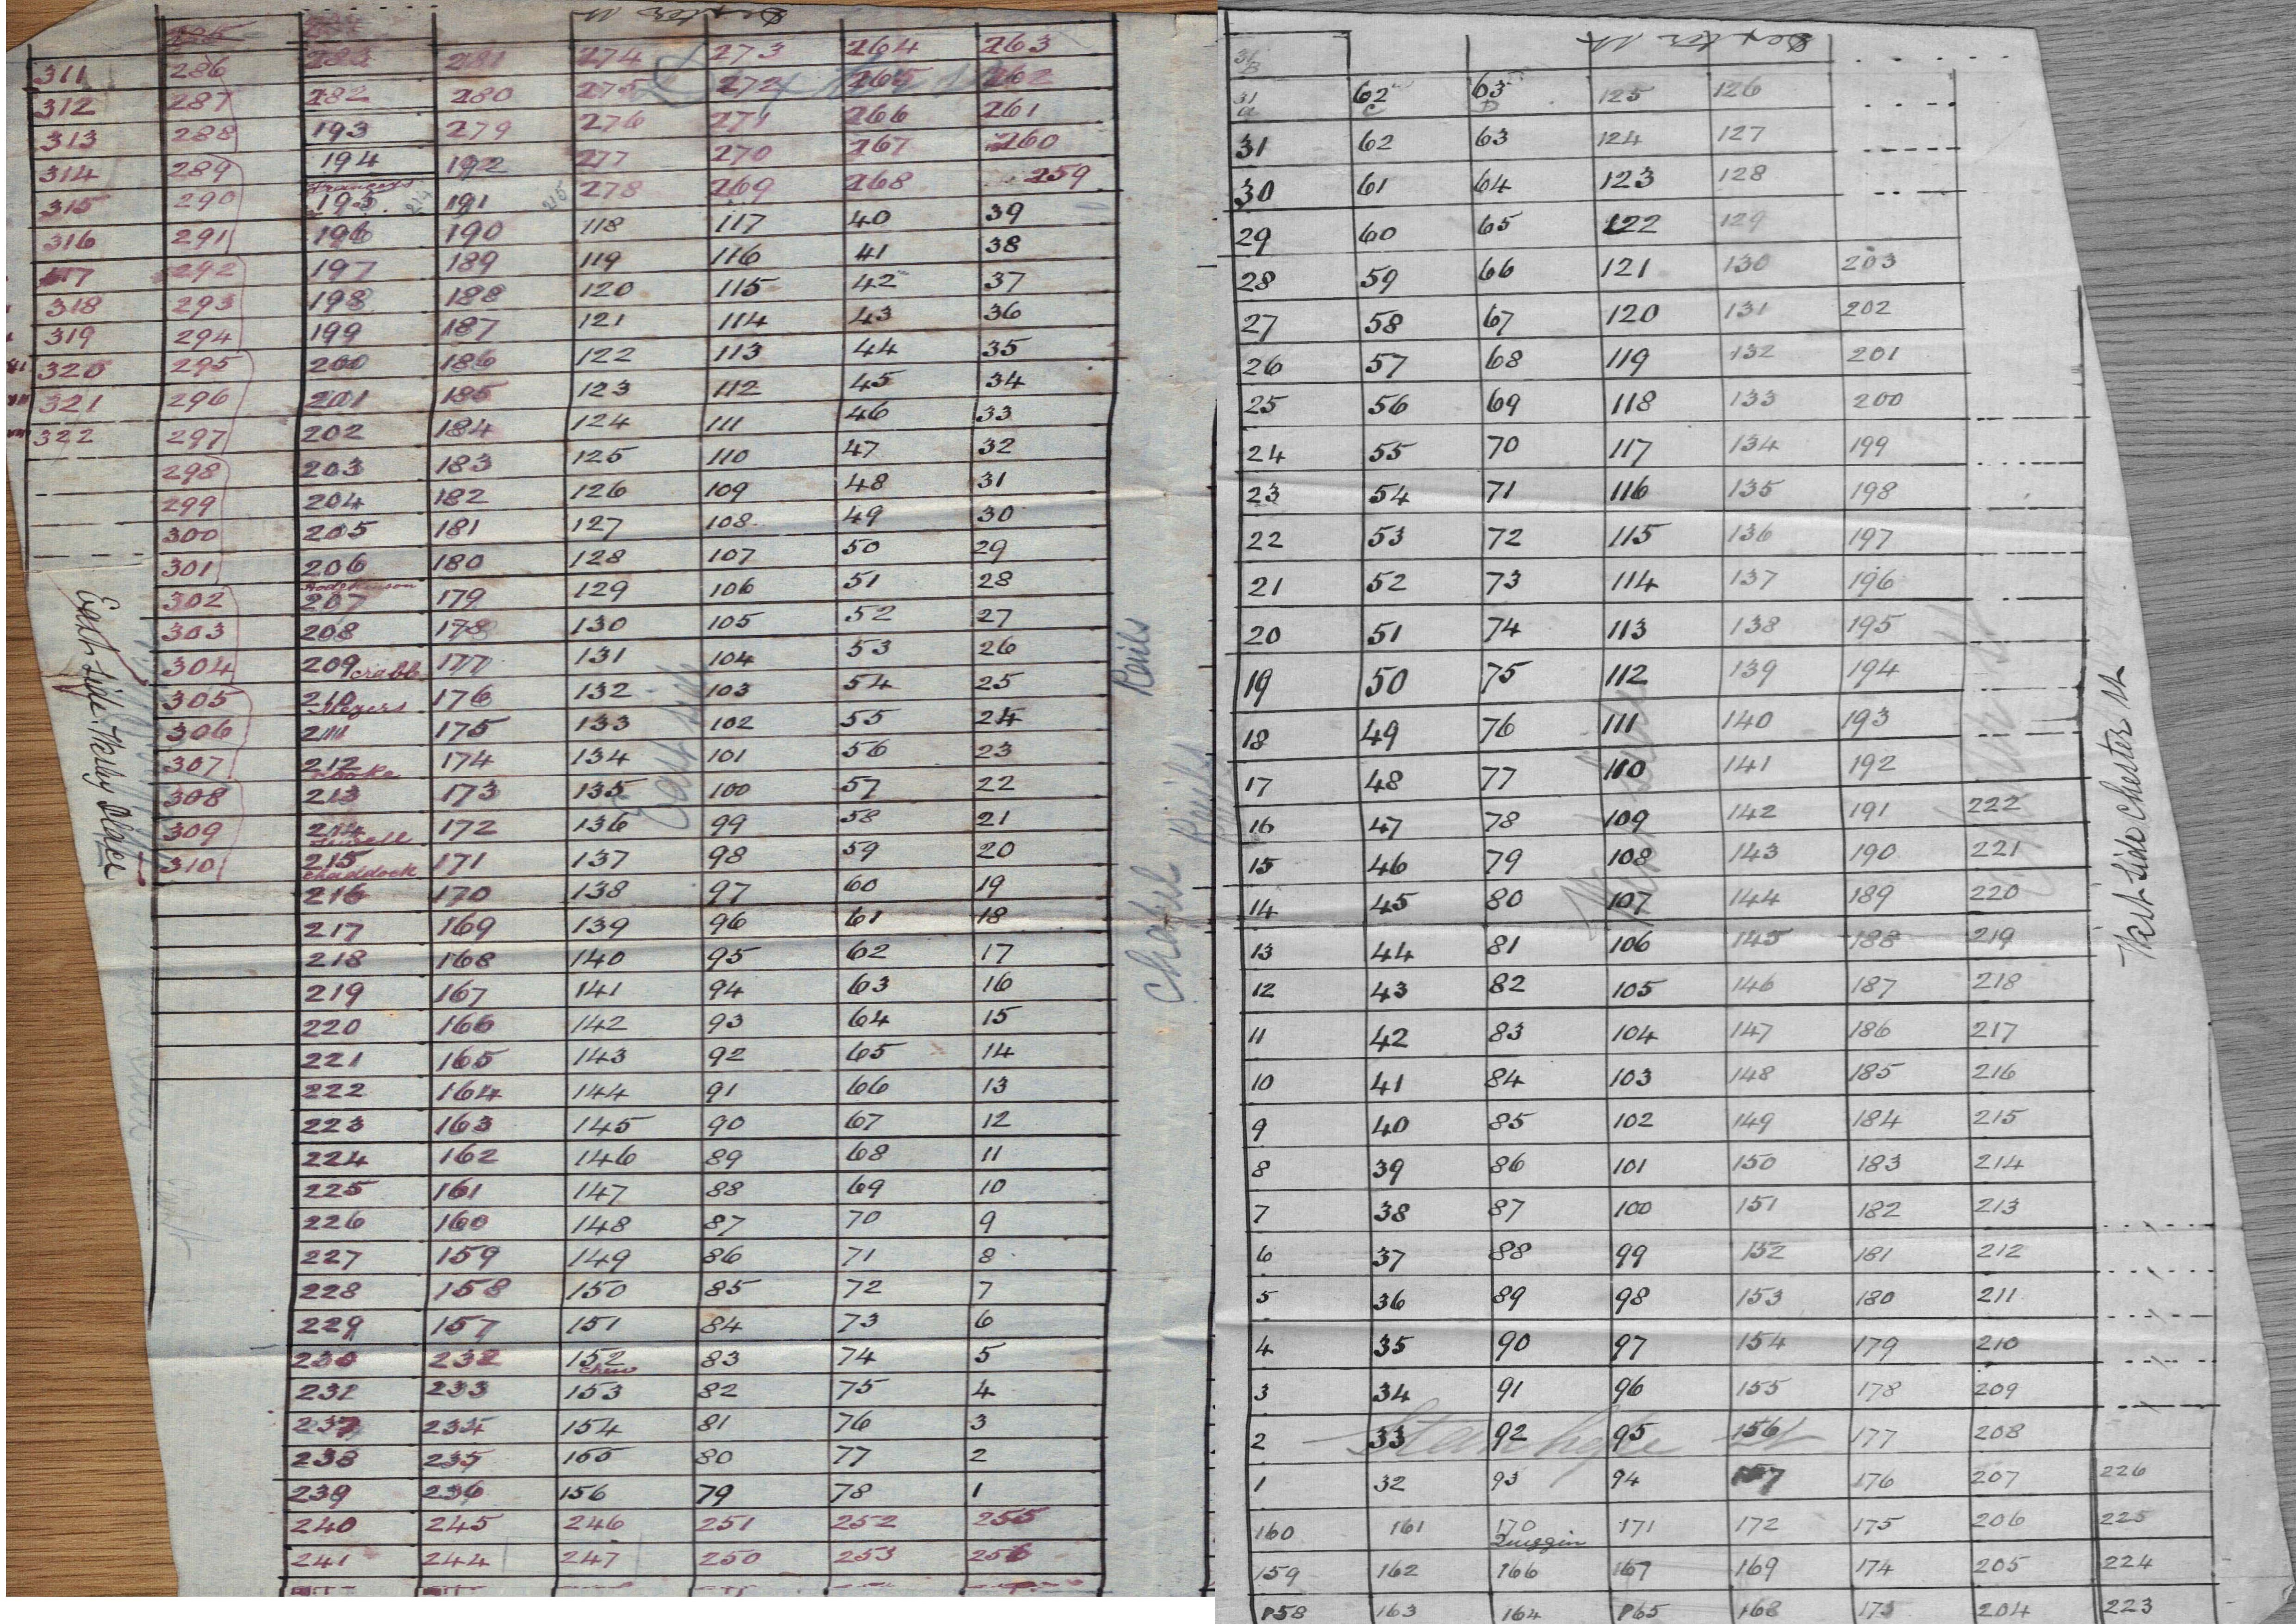 Dexter St
311 286 283 281 274 273 264 263
312 287 282 280 275 272 265 262
313 288 193 279 276 271 266 261
314 289 194 192 277 270 267 260
Francis
315 290 195 191 278 269 268 259
316 291 196 190 118 117 40 39
317 292 197 189 119 116 41 38
318 293 198 188 120 115 42 37
319 294 199 187 121 114 43 36
320 295 200 186 122 113 44 35
321 296 201 185 123 112 45 34
322 297 202 184 124 111 46 33
298 203 183 125 110 47 32
299 204 182 126 109 48 31
300 205 181 127 108 49 30
301 206 180 128 107 50 29
Hodgkinson
302 207 179 129 106 51 28
303 208 178 130 105 52 27
304 209 Crabb 177 131 104 53 26
305 210 176 132 103 54 25
306 211 175 133 102 55 24
307 212 174 134 101 56 23
308 213 173 135 100 57 22
309 214 172 136 99 58 21
310 215 171 137 98 59 20
Chaddock
216 170 138 97 60 19
217 169 139 96 61 18
218 168 140 95 62 17
219 167 141 94 63 16
220 166 142 93 64 15
221 165 143 92 65 14
222 164 144 91 66 13
223 163 145 90 67 12
224 162 146 89 68 11
225 161 147 88 69 10
226 160 148 87 70 9
227 159 149 86 71 8
228 158 150 85 72 7
229 157 151 84 73 6
230 232 152 83 74 5
231 233 153 82 75 4
237 234 154 81 76 3
238 235 155 80 77 2
239 236 156 79 78 1
240 245 246 251 252 255
241 244 247 250 253 256
East Side
Chapel
Rails
Dexter St
31 B
31 a 62 C 63 D 125 126
31 62 63 124 127
30 61 64 123 128
29 60 65 122 129
28 59 66 121 130 203
27 58 67 120 131 202
26 57 68 119 132 201
25 56 69 118 133 200
24 55 70 117 134 199
23 54 71 116 135 198
22 53 72 115 136 197
21 52 73 114 137 196
20 51 74 113 138 195
19 50 75 112 139 194
18 49 76 111 140 193
17 48 77 110 141 192
16 47 78 109 142 191 222
15 46 79 108 143 190 221
14 45 80 107 144 189 220
13 44 81 106 145 188 219
12 43 82 105 146 187 218
11 42 83 104 147 186 217
10 41 84 103 148 185 216
9 40 85 102 149 184 215
8 39 86 101 150 183 214
7 38 87 100 151 182 213
6 37 88 99 152 181 212
5 36 89 98 153 180 211
4 35 90 97 154 179 210
3 34 91 96 155 178 209
2 33 92 95 156 177 208
Stanhope St
1 32 93 94 157 176 207 226
160 161 170 171 172 175 206 225
Quiggin
159 162 166 167 169 174 205 224
158 163 164 165 168 173 204 223
West Side
West Side Chester St